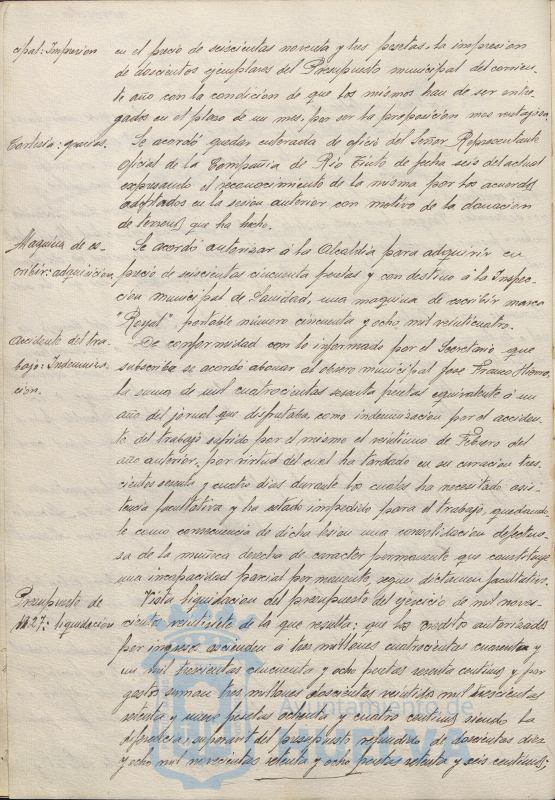 cipal: Impresion
en el precio de seiscientas noventa y tres pesetas, la impresion
de doscientos ejemplares del Presupuesto municipal del corrien-
te año con la condicion de que los mismos han de ser entre-
gados en el plazo de un mes, por ser la proposición mas ventajosa.
Cortesía: gracias.
Se acordó quedar enterada de oficio del Señor Representante
Oficial de la Compañia de Rio Tinto de fecha seis del actual
expresando el reconocimiento de la misma por los acuerdos
adoptados en la sesion anterior con motivo de la donacion
de terrenos que ha hecho.
Maquina de es-
cribir: adquisicion,
Se acordó autorizar á la Alcaldía para adquirir en
precio de seiscientas cincuenta pesetas y con destino á la Inspec-
cion municipal de Sanidad, una maquina de escribir marca
"Royal", portable número cincuenta y ocho mil veinticuatro.
Accidente del tra-
bajo: Indemniza-
cion.
De conformidad con lo informado por el Secretario que
subscribe se acordó abonar al obrero municipal José Franco
la suma de mil cuatrocientas sesenta pesetas equivalente á un
año del jornal que disfrutaba, como indemnizacion por el acciden-
te del trabajo sufrido por el mismo el veintiuno de Febrero del
año anterior, por virtud del cual ha tardado en su curacion tres-
cientos sesenta y cuatro dias durante los cuales ha necesitado asis-
tencia facultativa y ha estado impedido para el trabajo, quedando-
le como consecuencia de dicha lesion una consolidacion defectuo-
sa de la muñeca derecha de caracter permanente que constituye
una incapacidad parcial permanente, segun dictamen facultativo.
Presupuesto de
1927: liquidacion
Vista liquidacion del presupuesto del ejercicio de mil nove-
cientos veintisiete de la que resulta: que los creditos autorizados
por ingresos ascienden a tres millones cuatrocientas cuarenta y
un mil trescientas cincuenta y ocho pesetas sesenta centimos y por
gastos suman tres millones doscientas veintidos mil trescientas
setenta y nueve pesetas ochenta y cuatro centimos siendo la
diferencia, superavit del presupuesto refundido de doscientas diez
y ocho mil novecientas setenta y ocho pesetas setenta y seis centimos;
Ayuntamiento de
HUELVA